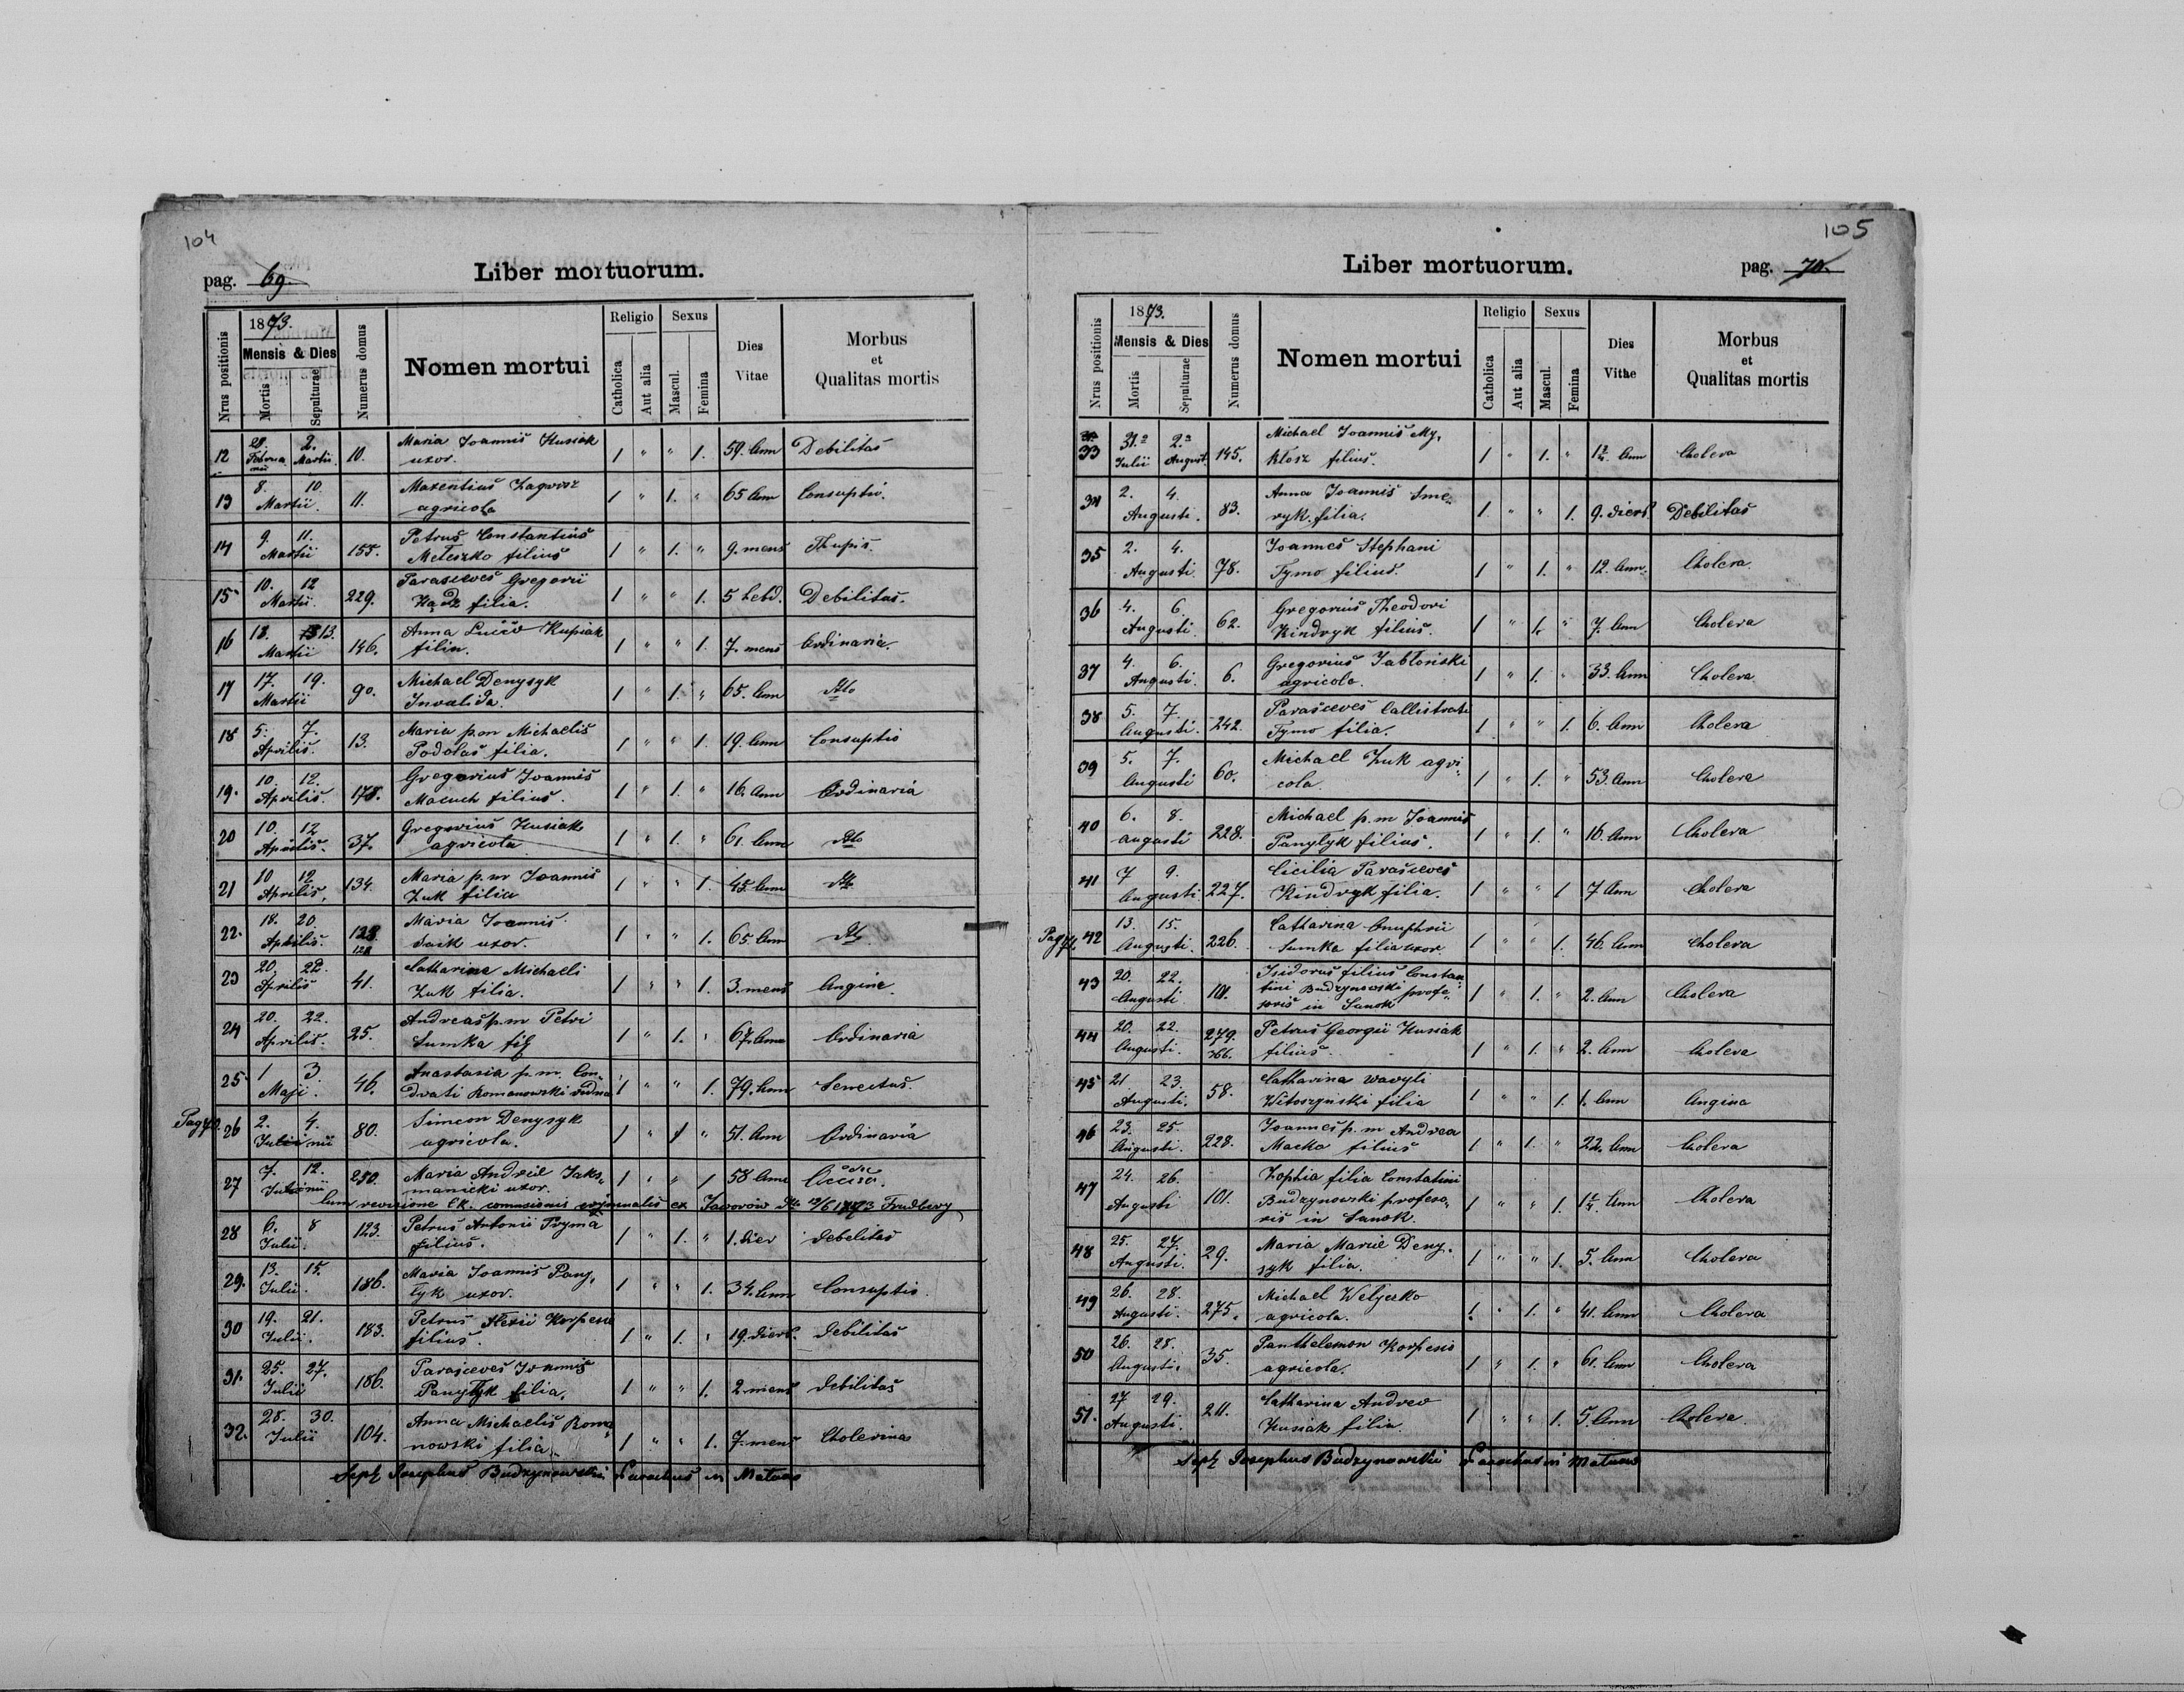 104
pag. 69.
Liber mortuorum.
Nrus positionis
1873.
Mensis & Dies
Mortis
Sepulturae
Numerus domus
Nomen mortui
Religio
Catholica
Aut alia
Sexus
Mascul.
Femina
Dies
Vitae
Morbus
et
Qualitas mortis
12 28. 2. 10. Maria Joannis Husiak 1 " " 1. 59. Ann Debilitas
Martii. uxor.
13 8. 10. 11. Maxentius Zagrosz 1 " 1. " 65 Ann Consuptio.
Martii. agricola
14 9. 11. 155. Petrus Constantius 1 " 1. " 9. mens
Martii Meleszko filius
15 10. 12 229. Parasceves Gregorii 1 " " 1. 5 hebd. Debilitas.
Martii. Hadz filia.
16 13. 13. 146. Anna Kupiak 1 " " 1. 7. mens Ordinaria.
Martii filia.
17 17. 19. 90. Michael Denysyk 1 " 1. " 65. Ann dtto
Martii Invalida.
18 5. 7. 13. Maria p.m Michaelis 1 " " 1. 19. Ann Consuptio
Aprilis. Podolas filia.
19. 10. 12. 178. Gregorius Joannis 1 " 1. " 16. Ann Ordinaria
Aprilis. Macuch filius.
20 10. 12 37. Gregorius Husiak 1 " 1. " 61. Ann dtto
Aprilis. agricola
21 10 12 134. Maria p.m Joannis 1 " " 1. 45. Ann dtto
Aprilis. Zuk filia
22. 18. 20. 128. Maria Joannis 1 " " 1. 65 Ann dtto
Aprilis. uxor.
23 20. 22. 41. Catharina Michaeli 1 " " 1. 3. mens Angina.
Aprilis Zuk filia.
24 20. 22. 25. Andreas p.m Petri 1 " 1. " 67. Ann Ordinaria
Aprilis. Sumka fil
25 1 3. 46. Anastasia p.m. Con- 1 " " 1. 79. Ann Senectus.
Maji. drati Romanowski vidua
Pag 70. 26 2. 4. 80. Simeon Denysyk 1 " 1 " 51. Ann Ordinaria
agricola.
27 7. 12. 250. Maria Andreae Jaks- 1 " " 1 58 Ann
manicki uxor.
Cum revisione commisionis criminalis ex Jaworow dto 12/6 1873
28 6. 8 123. Petrus Antonii Pryma 1 " 1. " 1. dier debilitas
Julii. filius.
29. 13. 15. 186. Maria Joannis Pany- 1 " " 1. 34. Ann Consuptio.
Julii. tyk uxor.
30 19. 21. 183. Petrus Alexii Korpesio 1 " 1. " 19. dier. debilitas
Julii. filius.
31. 25. 27. 186. Parasceves Joannis 1 " " 1. 2. mens debilitas
Julii Panytyk filia.
32. 28. 30. 104. Anna Michaelis Roma- 1 " " 1. 7. mens Cholerina
Julii nowski filia.
Josephus Budzynowski Parochus in
105
Liber mortuorum.
pag. 70.
Nrus positionis
1873.
Mensis & Dies
Mortis
Sepulturae
Numerus domus
Nomen mortui
Religio
Catholica
Aut alia
Sexus
Mascul.
Femina
Dies
Vitae
Morbus
et
Qualitas mortis
33 31. 2. 145. Michael Joannis My- 1 " 1. " Ann Cholera
Julii August. klosz filius.
34 2. 4. 83. Anna Joannis Sme- 1 " " 1. 9. dier. Debilitas
Augusti. ryk filia.
35 2. 4. 78. Joannes Stephani 1 " 1. " 12. Ann. Cholera.
Augusti. Tymo filius.
36 4. 6. 62. Gregorius Theodori 1 " 1. " 7. Ann Cholera
Augusti. Kindryk filius.
37 4. 6. 6. Gregorius Jabłonski 1 " 1. " 33. Ann Cholera
Augusti. agricola.
38 5. 7. 242. Parasceves Callistrati 1 " " 1. 6. Ann Cholera
Augusti. Tymo filia.
39 5. 7. 60. Michael Zuk agri- 1 " 1. " 53. Ann Cholera
Augusti cola.
40 6. 8. 228. Michael p.m Joannis 1 " 1. " 16. Ann Cholera
augusti Panytyk filius.
41 7 9. 227. Cicilia Parasceves 1 " " 1 7 Ann Cholera
Augusti. Kindryk filia.
Pag 71. 42 13. 15. 226. Catharina Onuphrii 1 " " 1. 46. Ann Cholera
Augusti. Sumka filia uxor
43 20. 22. 101. Isidorus filius Constan- 1 " 1. " 2. Ann Cholera
Augusti. tini Budzynowski profe-
soris in Sanok
44 20. 22. 279. Petrus Georgii Husiak 1 " 1. " 2. Ann Cholera
Augusti. 266. filius.
45 21 23. 58. Catharina Wavyli 1 " " 1. 1. Ann Angina
Augusti. Witoszynski filia
46 23. 25. 228. Joannes p.m Andrea 1 " 1. " 22. Ann Cholera
Augusti. Macko filius
47 24. 26. 101. Zophia filia Constatini 1 " " 1. Ann Cholera
Augusti Budzynowski profeso-
ris in Sanok.
48 25. 27. 29. Maria Mariae Deny- 1 " " 1. 5. Ann Cholera
Augusti. syk filia.
49 26. 28. 275. Michael Welyczko 1. " 1. " 41. Ann Cholera
Augusti. agricola.
50 26. 28. 35. Panthelemon Korpesio 1 " 1. " 61. Ann Cholera
Augusti. agricola.
51. 27 29. 211. Catharina Andreo 1 " " 1. 5. Ann Cholera
Augusti. Husiak filia.
Josephus Budzynowski Parochus in